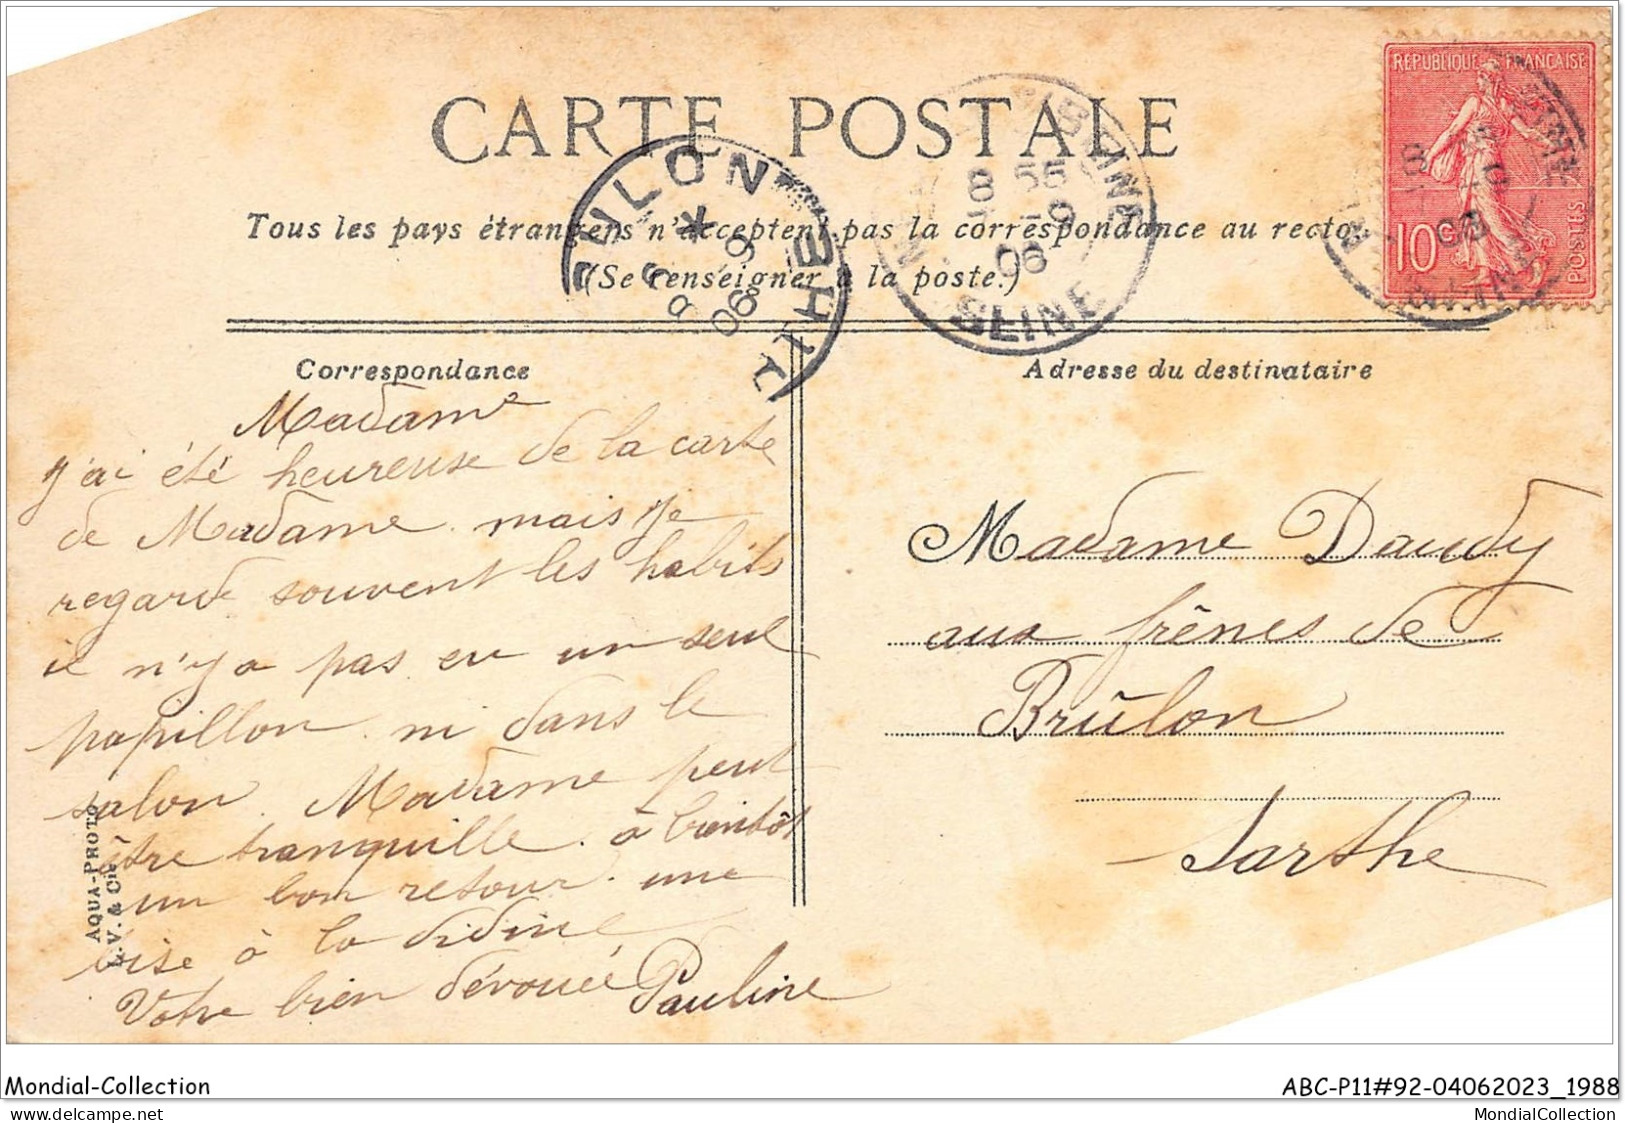 CARTE POSTALE
RÉPUBLIQUE FRANÇAISE
10c
POSTES
Tous les pays étrangers n'acceptent pas la correspondance au recto
(Se renseigner à la poste.)
8 55
06
SEINE
Correspondance
Adresse du destinataire
Madame
j'ai été heureuse de la carte
de Madame. mais je
regarde souvent les habits
il n'y a pas eu un seul
papillon. ni dans le
salon. Madame peut
être tranquille. à bientôt
un bon retour. une
bise à la didine
Votre bien dévouée Pauline
Madame Daudy
aux frênes de
Brûlon
Sarthe
AQUA-PHOTO
L.V. & Cie
Mondial-Collection
ABC-P11#92-04062023_1988
MondialCollection